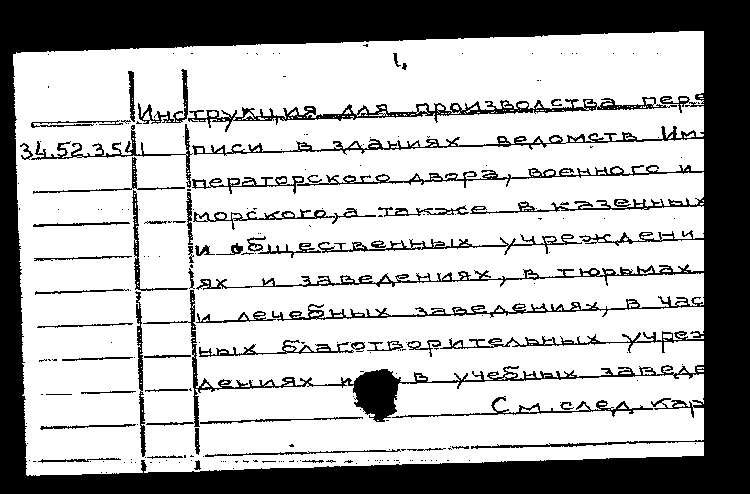 1.
Инструкция для производства пере
34.52.3.541 писи в зданиях ведомств Им-
ператорского двора, военного и
морского, а также в казенных
и общественных учреждени
ях и заведениях, в тюрьмах
и лечебных заведениях, в час
ных благотворительных учреж
дениях и в учебных заведе
См. след. кар